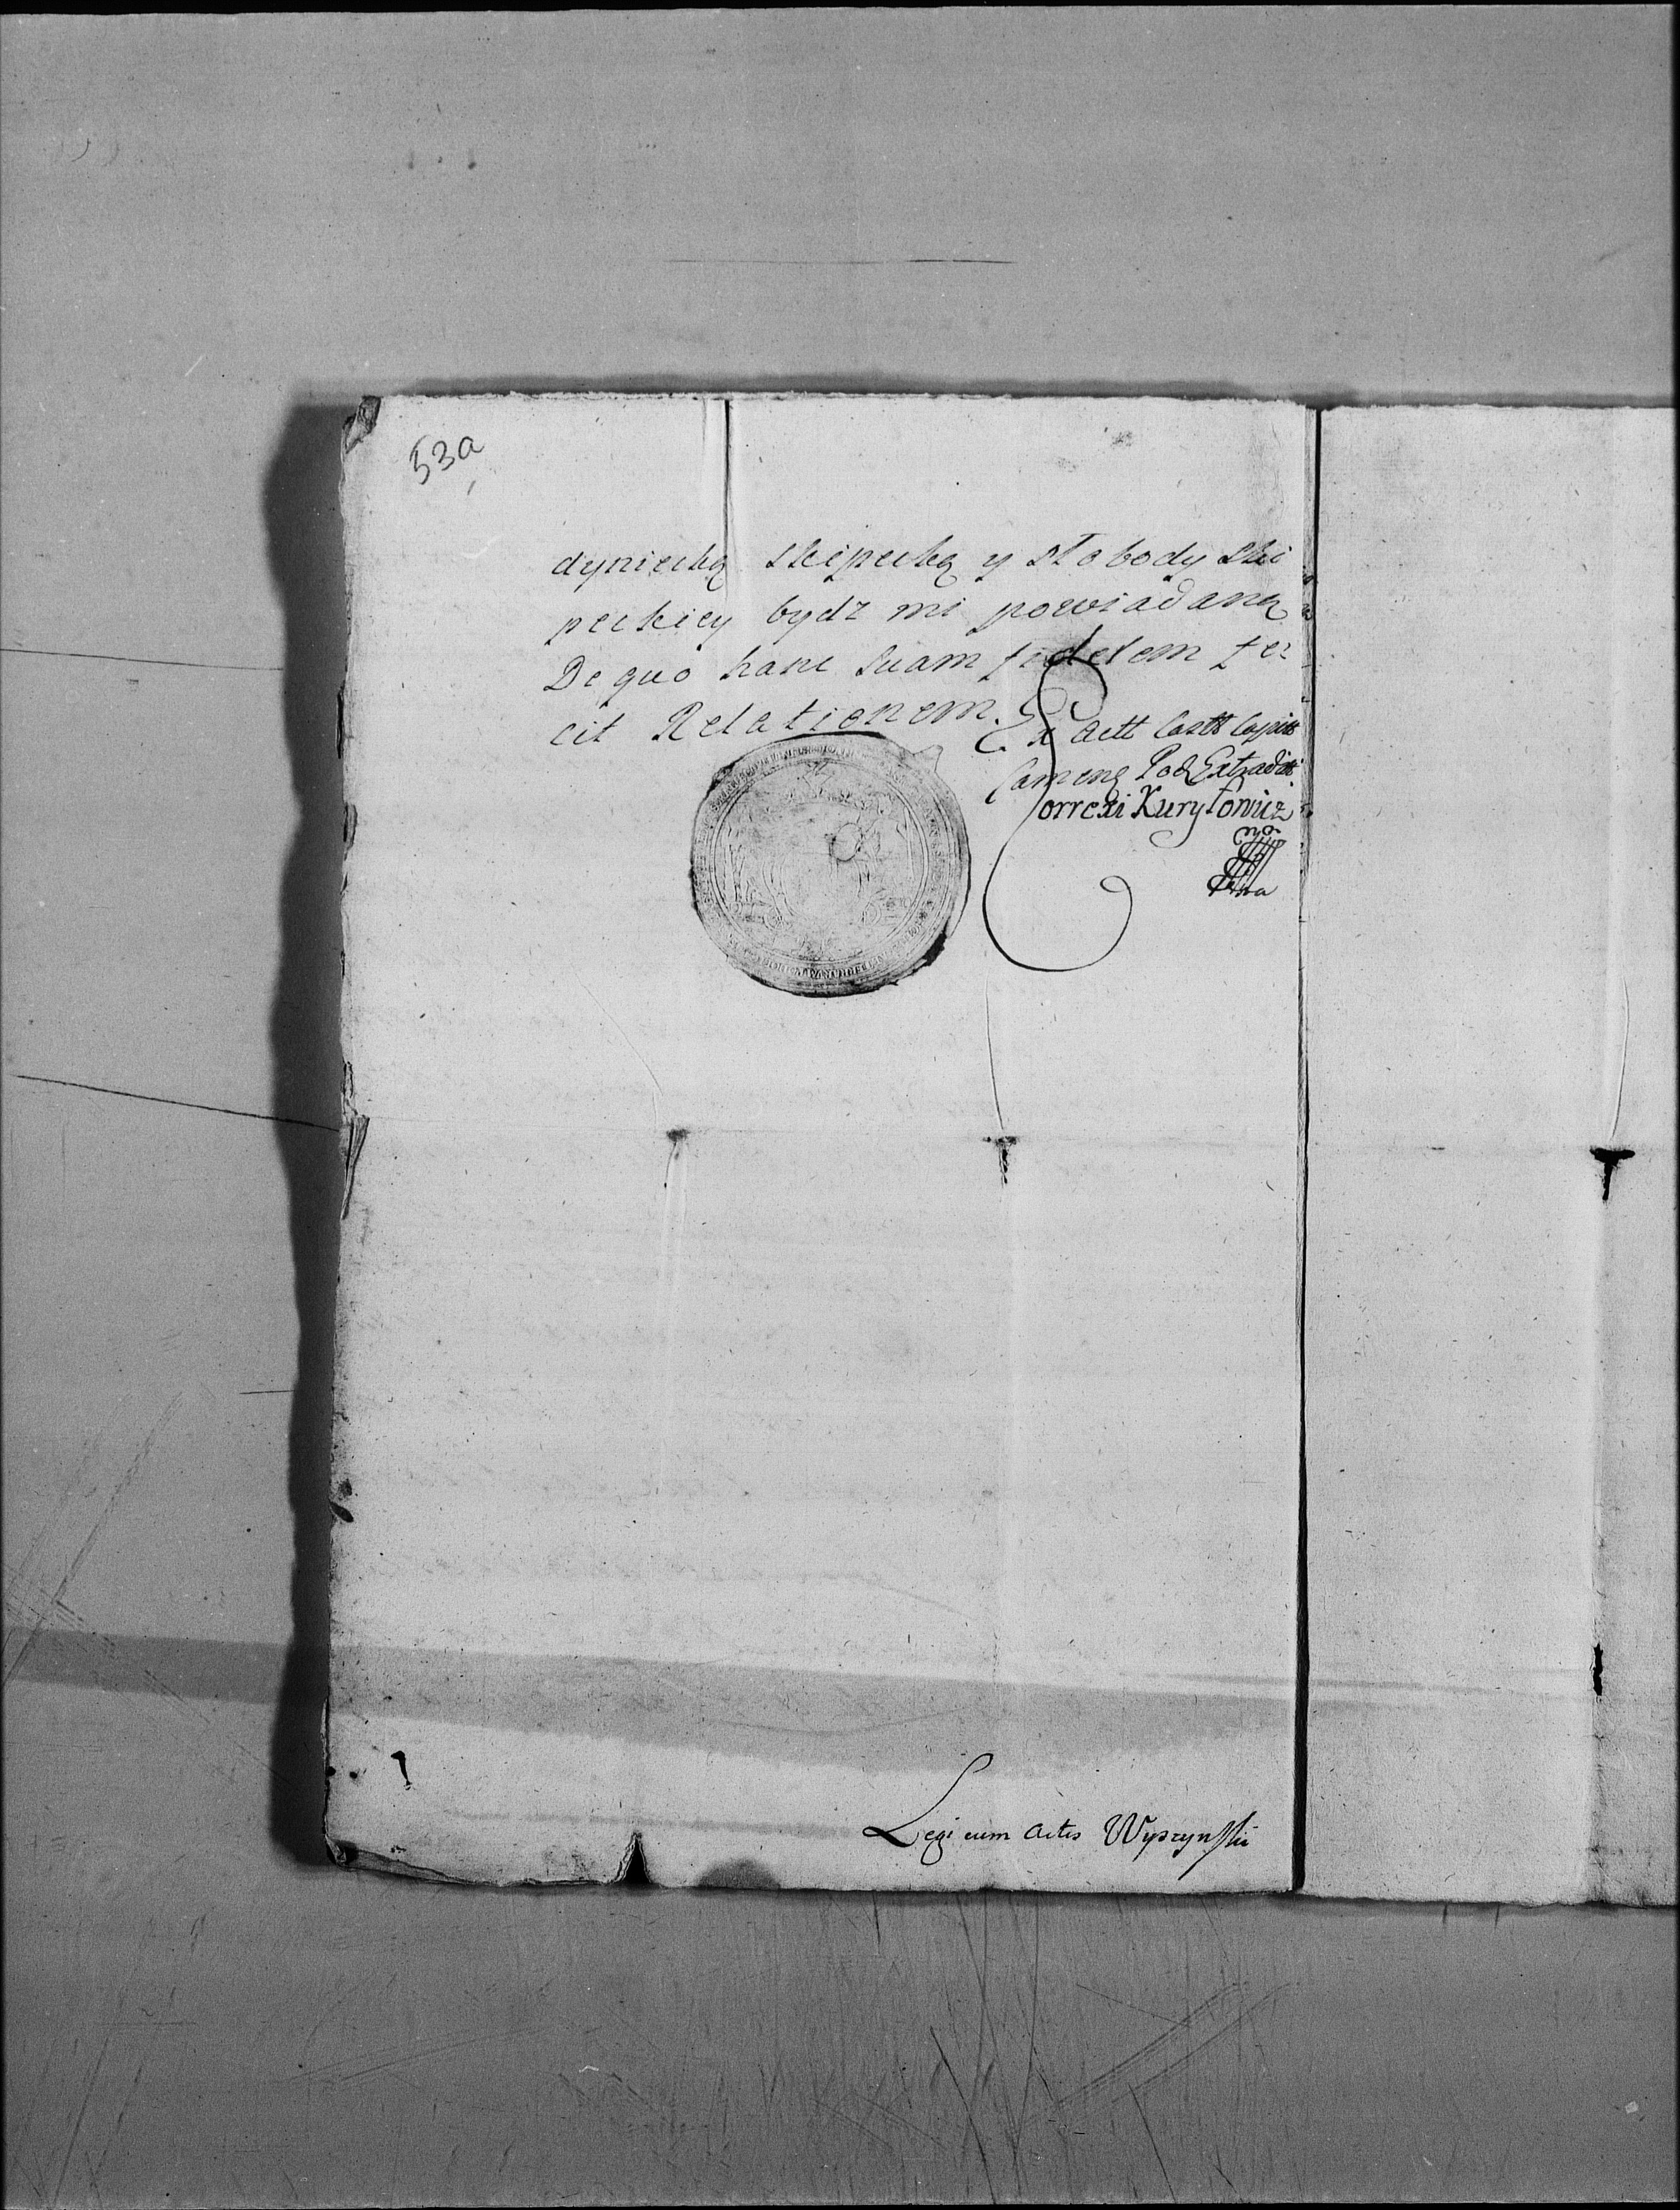 53a
dyniecką Skipecką y Słobody Ski
peckiey bydz mi powiadaną
De quo hanc suam fidelem fe=
cit Relationem.
Ex Actt Castt Capitt
Camene Pod Extradit
Correxi Kuryłowicz
mp
Legi cum Actis Wyszynski